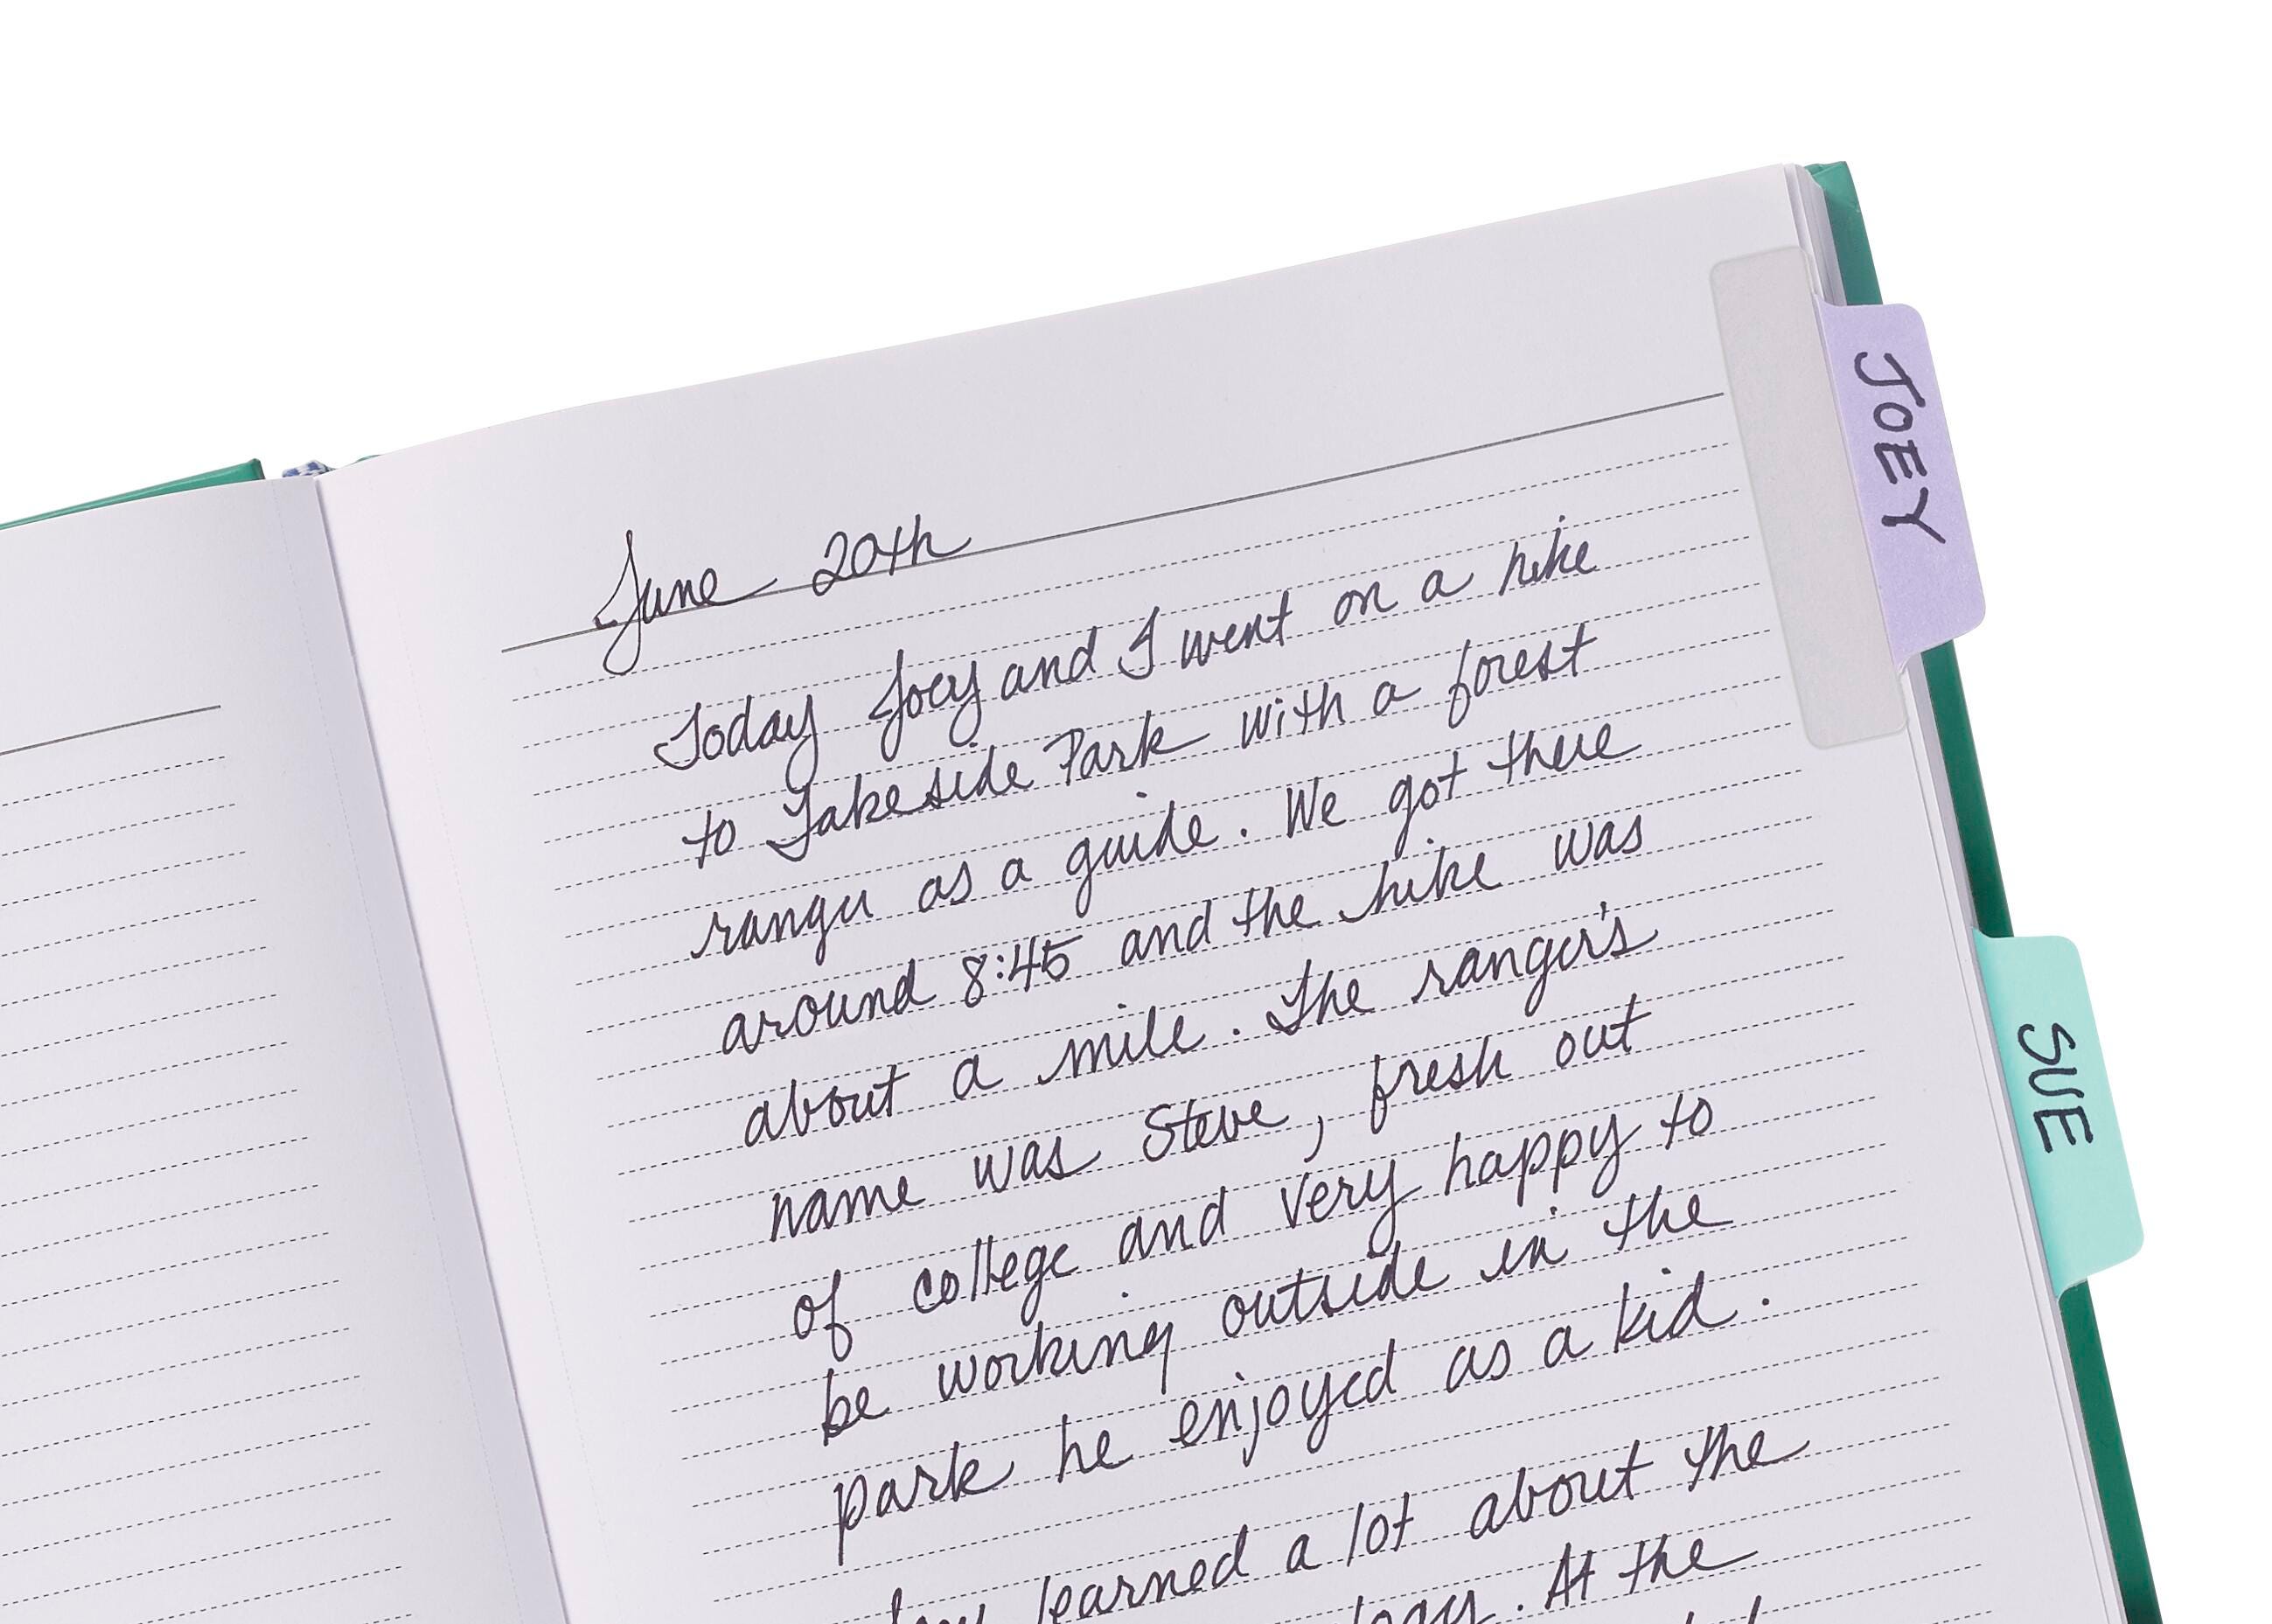 June 20th
Today Joey and I went on a hike
to Lakeside Park with a forest
ranger as a guide. We got there
around 8:45 and the hike was
about a mile. The ranger's
name was Steve, fresh out
of college and very happy to
be working outside in the
park he enjoyed as a kid.
learned a lot about the
. At the
JOEY
SUE